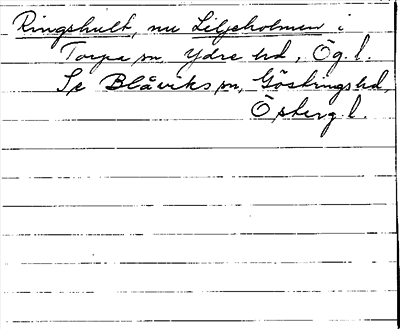 Ringshult, nu Liljeholmen i
Torpa sn, Ydre hd, Ög. l.
Se Blåviks sn, Göstrings hd,
Österg. l.